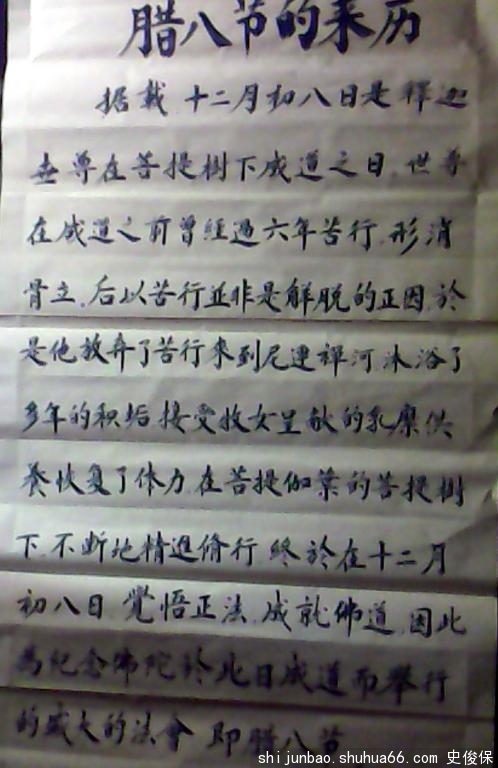 腊八节的来历
据载 十二月初八日是释迦
世尊在菩提樹下成道之日.世尊
在成道之前曾經過六年苦行.形消
骨立.后以苦行並非是解脱的正因.於
是他放弃了苦行来到尼連禪河沐浴了
多年的积垢接受牧女呈献的乳糜供
养恢复了体力.在菩提伽葉的菩提樹
下.不断地精進脩行.终於在十二月
初八日.覺悟正法.成就佛道.因此
為纪念佛陀於此日成道而舉行
的盛大的法會 即腊八节
shijunbao.shuhua66.com 史俊保